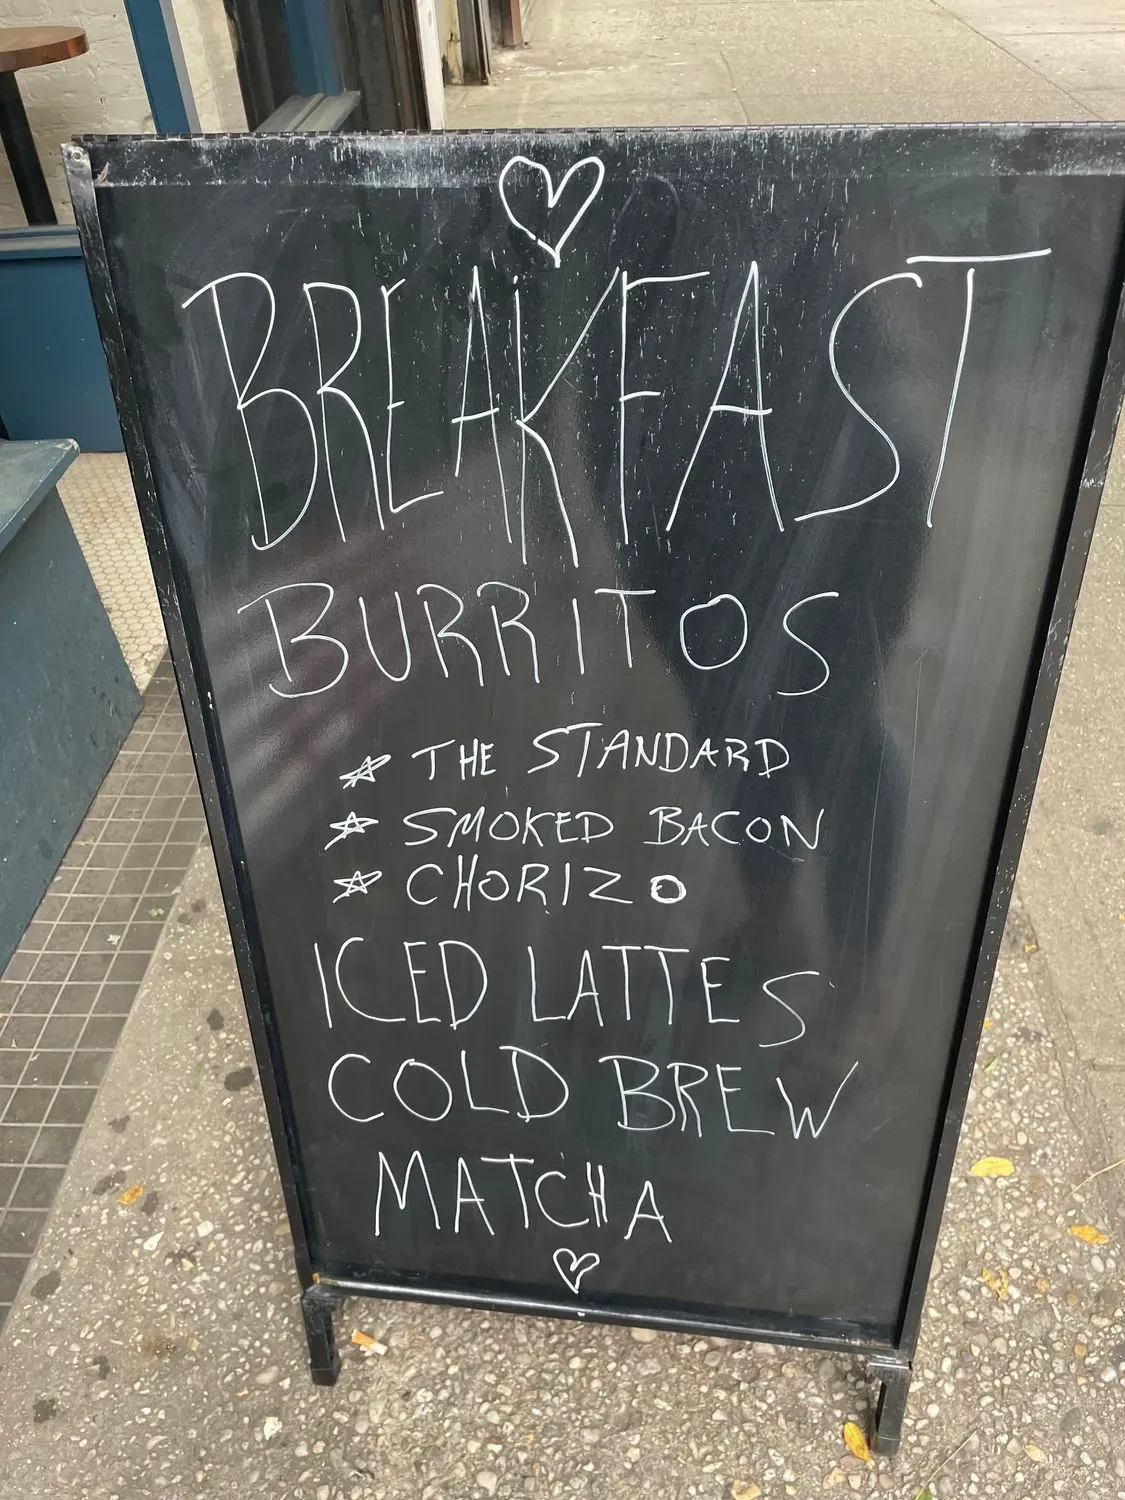 BREAKFAST
BURRITOS
THE STANDARD
SMOKED BACON
CHORIZO
ICED LATTES
COLD BREW
MATCHA